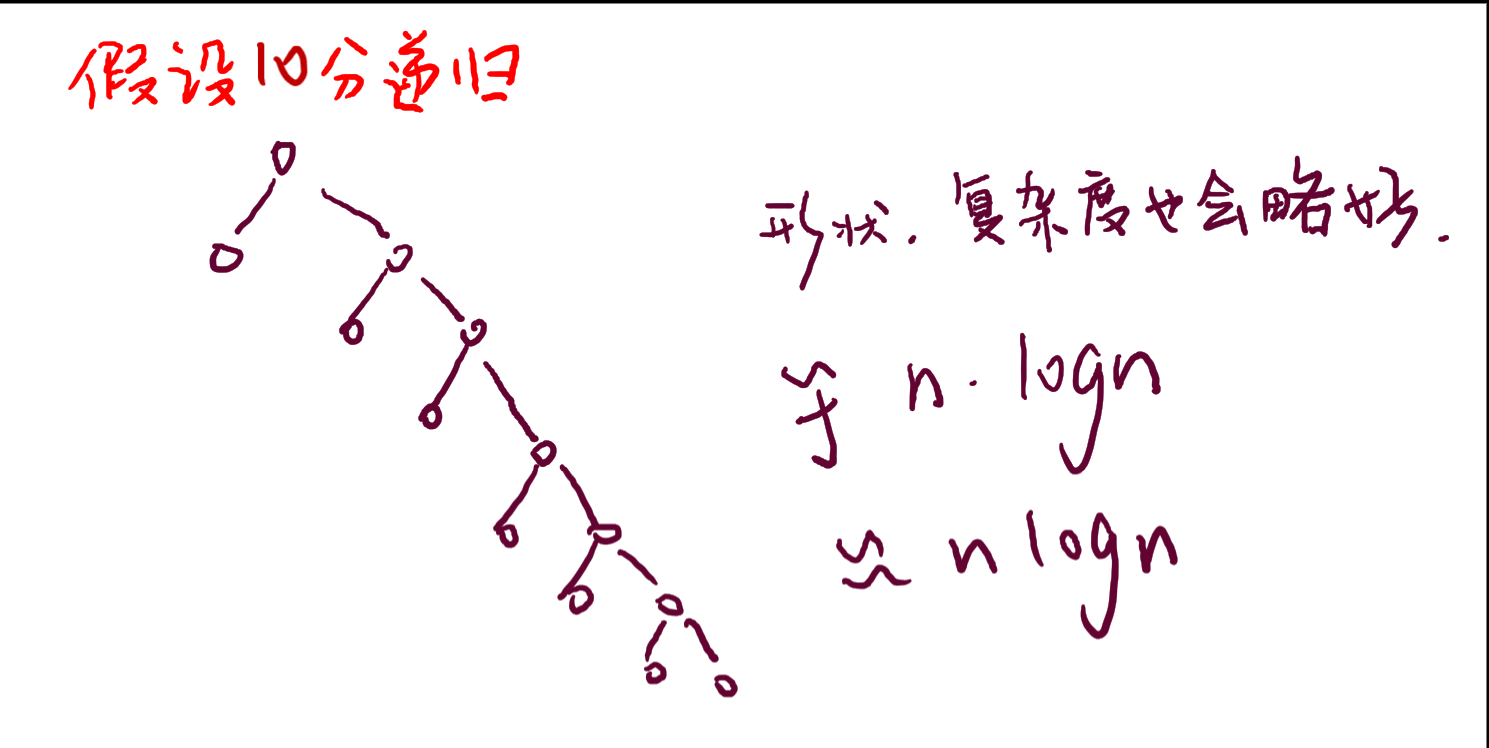 假设10分递归
形状.复杂度也会略好.
n·logn
≈ nlogn